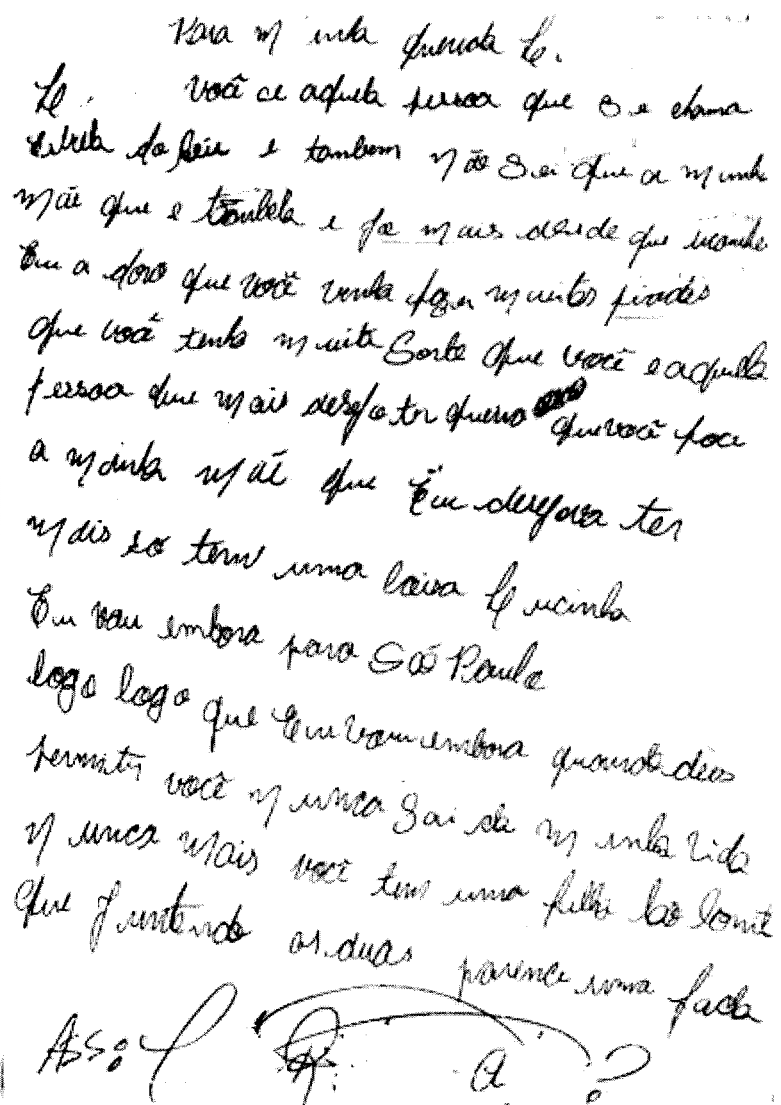 Para Minha querida Lê.
Lê. Você ce aquela pessoa que se chama
estrela do Céu e tambem não Sei que a minha
mãe que e tãobela e fa mais desde que
Eu a doro que você venha fazer muitos
que você tenha muita Sorte que você e aquela
pessoa que mais desejo ter quero que você foce
a Minha Mãe que Eu desejava ter
Mais so tem uma Coisa Leucinha
Eu vou embora para São Paulo
logo logo que Eu vou embora quando deus
permitir você Nunca Sai de Minha vida
Nunca Mais você tem uma filha tão bonit
que Juntando as duas parence uma fada
Ass: R: a ?